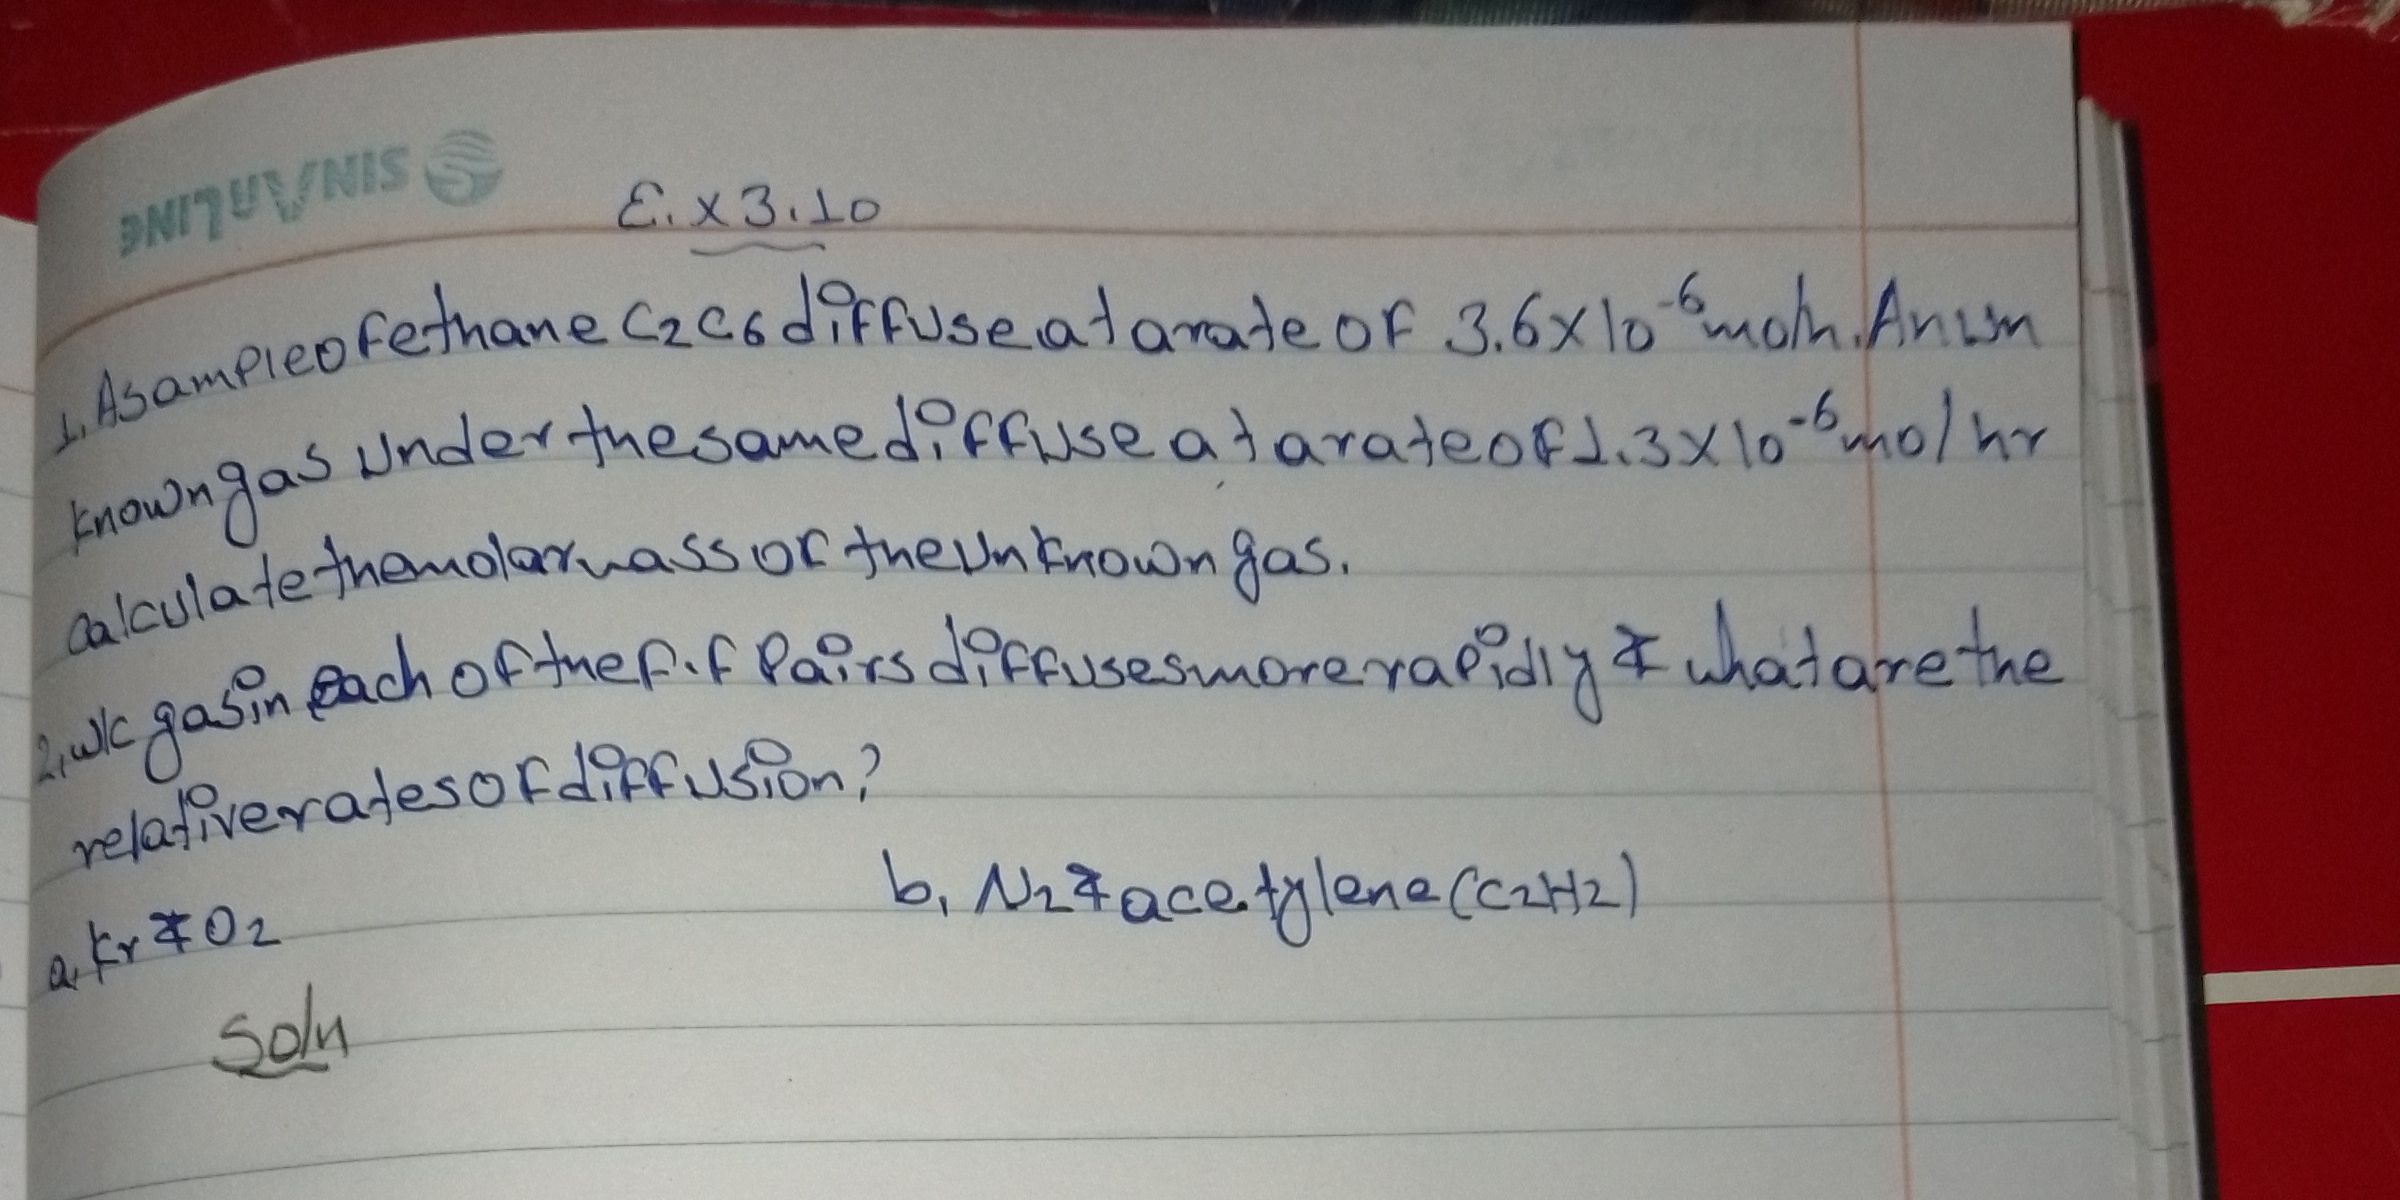 SINARLINE
E.x 3.10
1. A sample of ethane C2C6 diffuse at a rate of 3.6x10^-6 moh. An un
known gas under the same diffuse at a rate of 1.3x10^-6 mol hr
calculate the molar mass of the unknown gas.
2, w/c gas in each of the f.f Pairs diffuses more rapidly & what are the
relative rates of diffusion?
a, Kr & O2
b, N2 & acetylene (C2H2)
Soln